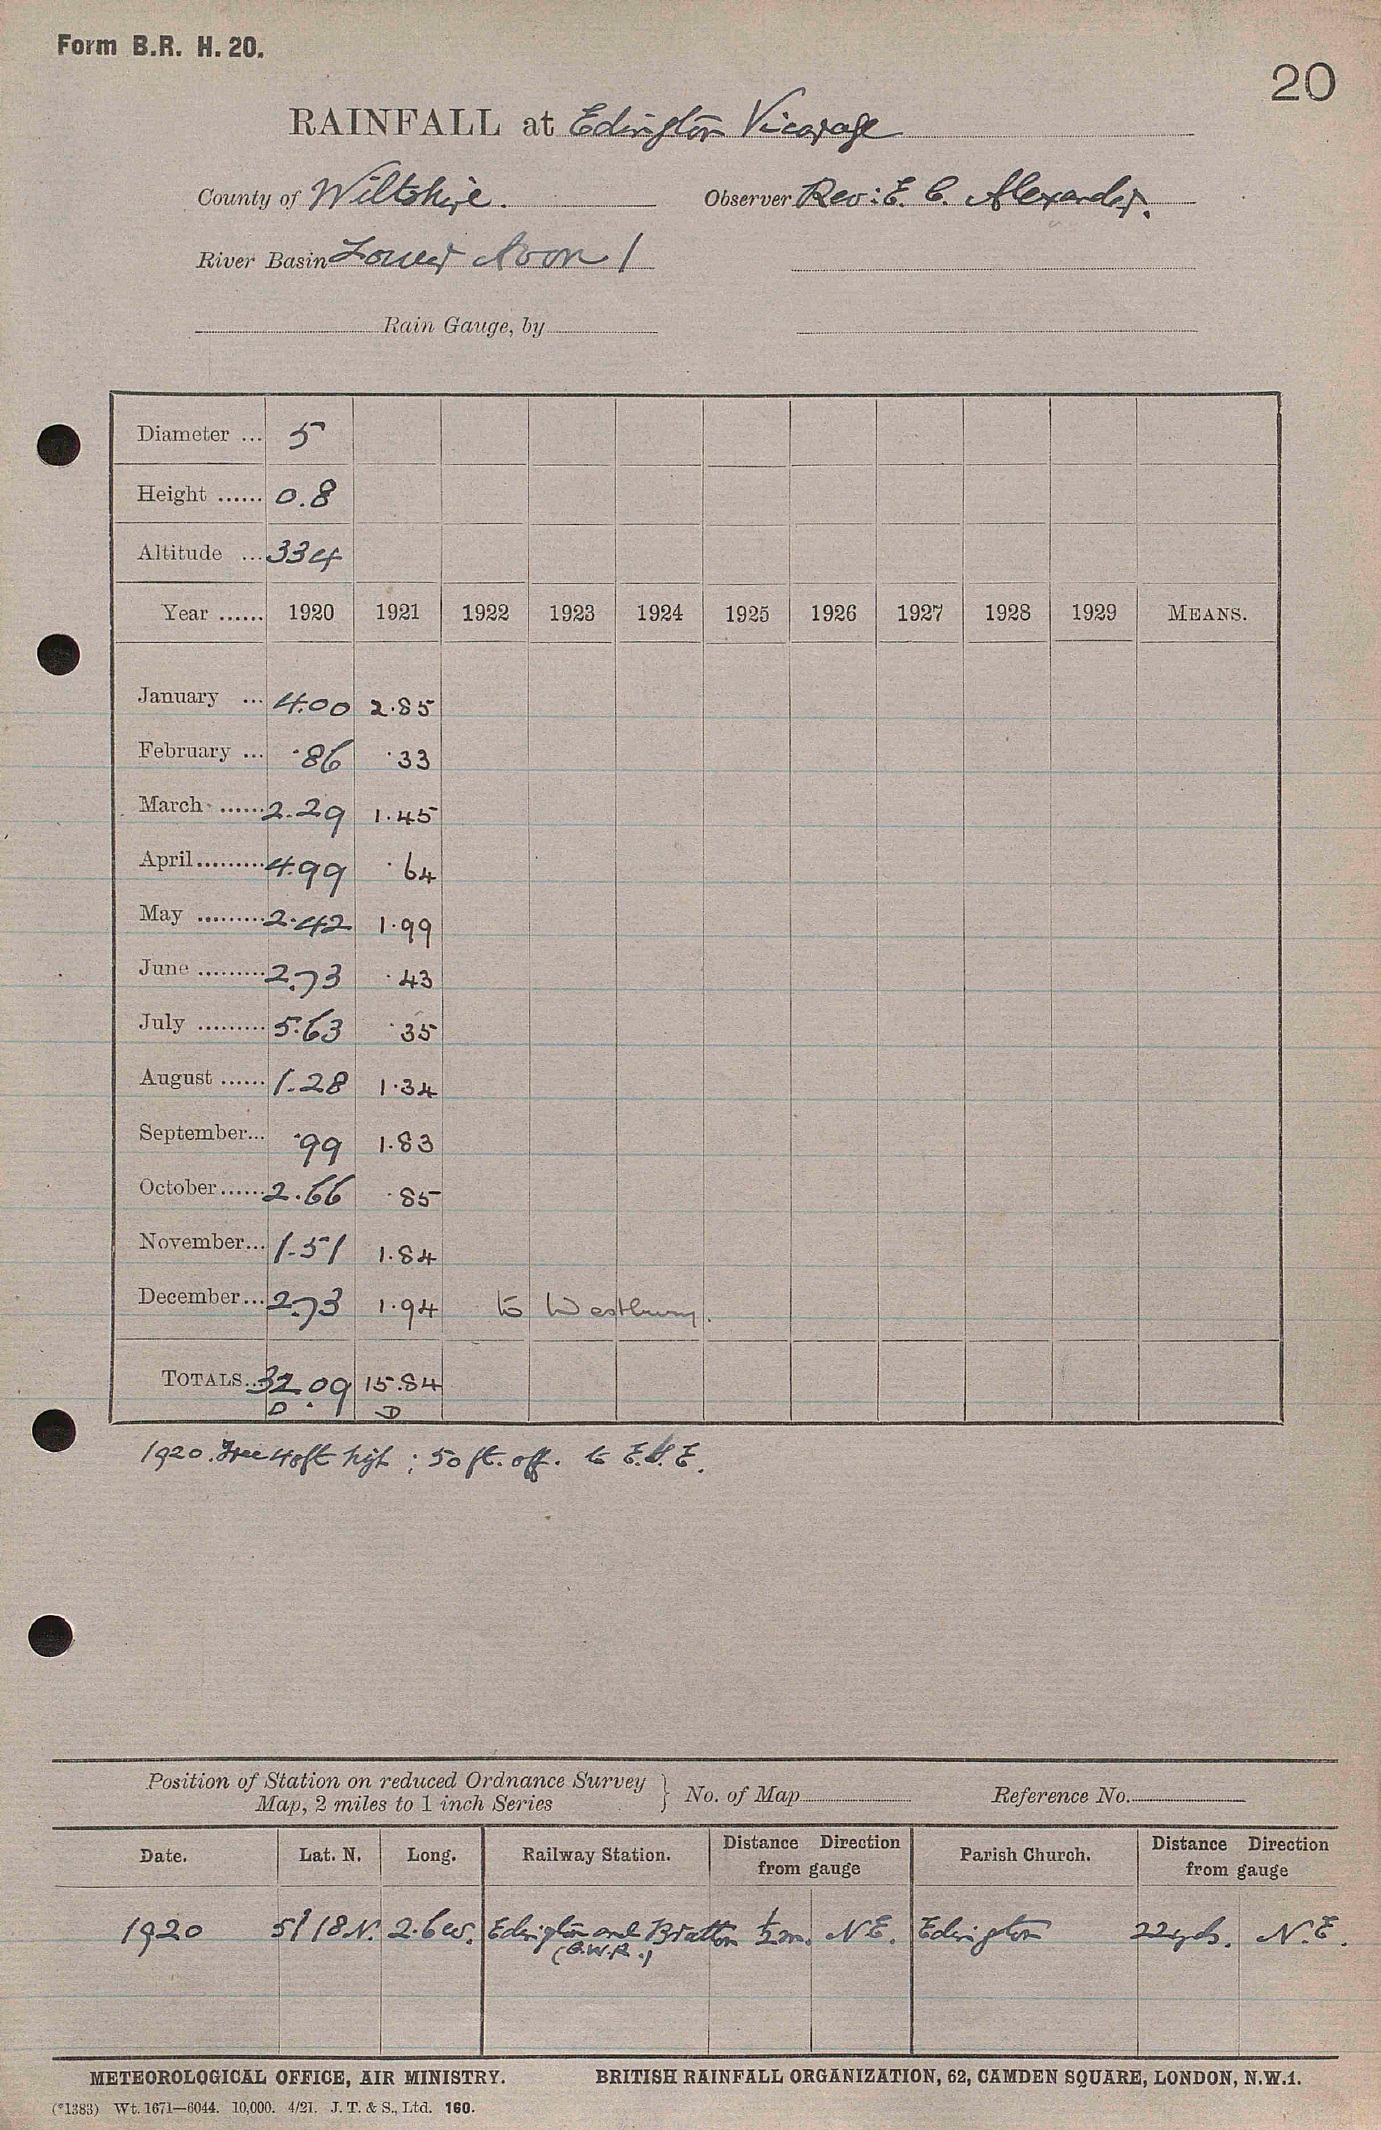 Form B.R. H. 20.
20
RAINFALL at Edington Vicarage
County of Wiltshire. Observer Rev: E. C. Alexander.
River Basin Lower Avon 1
Rain Gauge, by
Diameter ... 5
Height ...... 0.8
Altitude ... 334
Year ...... 1920 1921 1922 1923 1924 1925 1926 1927 1928 1929 MEANS.
January ... 4.00 2.85
February ... .86 .33
March ...... 2.29 1.45
April ......... 4.99 .64
May ......... 2.42 1.99
June ......... 2.73 .43
July ......... 5.63 .35
August ...... 1.28 1.34
September... .99 1.83
October ...... 2.66 .85
November... 1.51 1.84
December... 2.73 1.94 to Westbury.
TOTALS... 32.09 15.84
D D
1920. Tree 40ft high ; 50 ft. off. to E.
Position of Station on reduced Ordnance Survey
Map, 2 miles to 1 inch Series } No. of Map Reference No.
Date. Lat. N. Long. Railway Station. Distance Direction from gauge Parish Church. Distance Direction from gauge
1920 51°18 N. 2.6 W. Edington and Bratton ½ m. N E. Edington 22 yds. N. E.
(G.W.R.)
METEOROLOGICAL OFFICE, AIR MINISTRY. BRITISH RAINFALL ORGANIZATION, 62, CAMDEN SQUARE, LONDON, N.W.1.
(*1383) Wt. 1671—6044. 10,000. 4/21. J. T. & S., Ltd. 160.